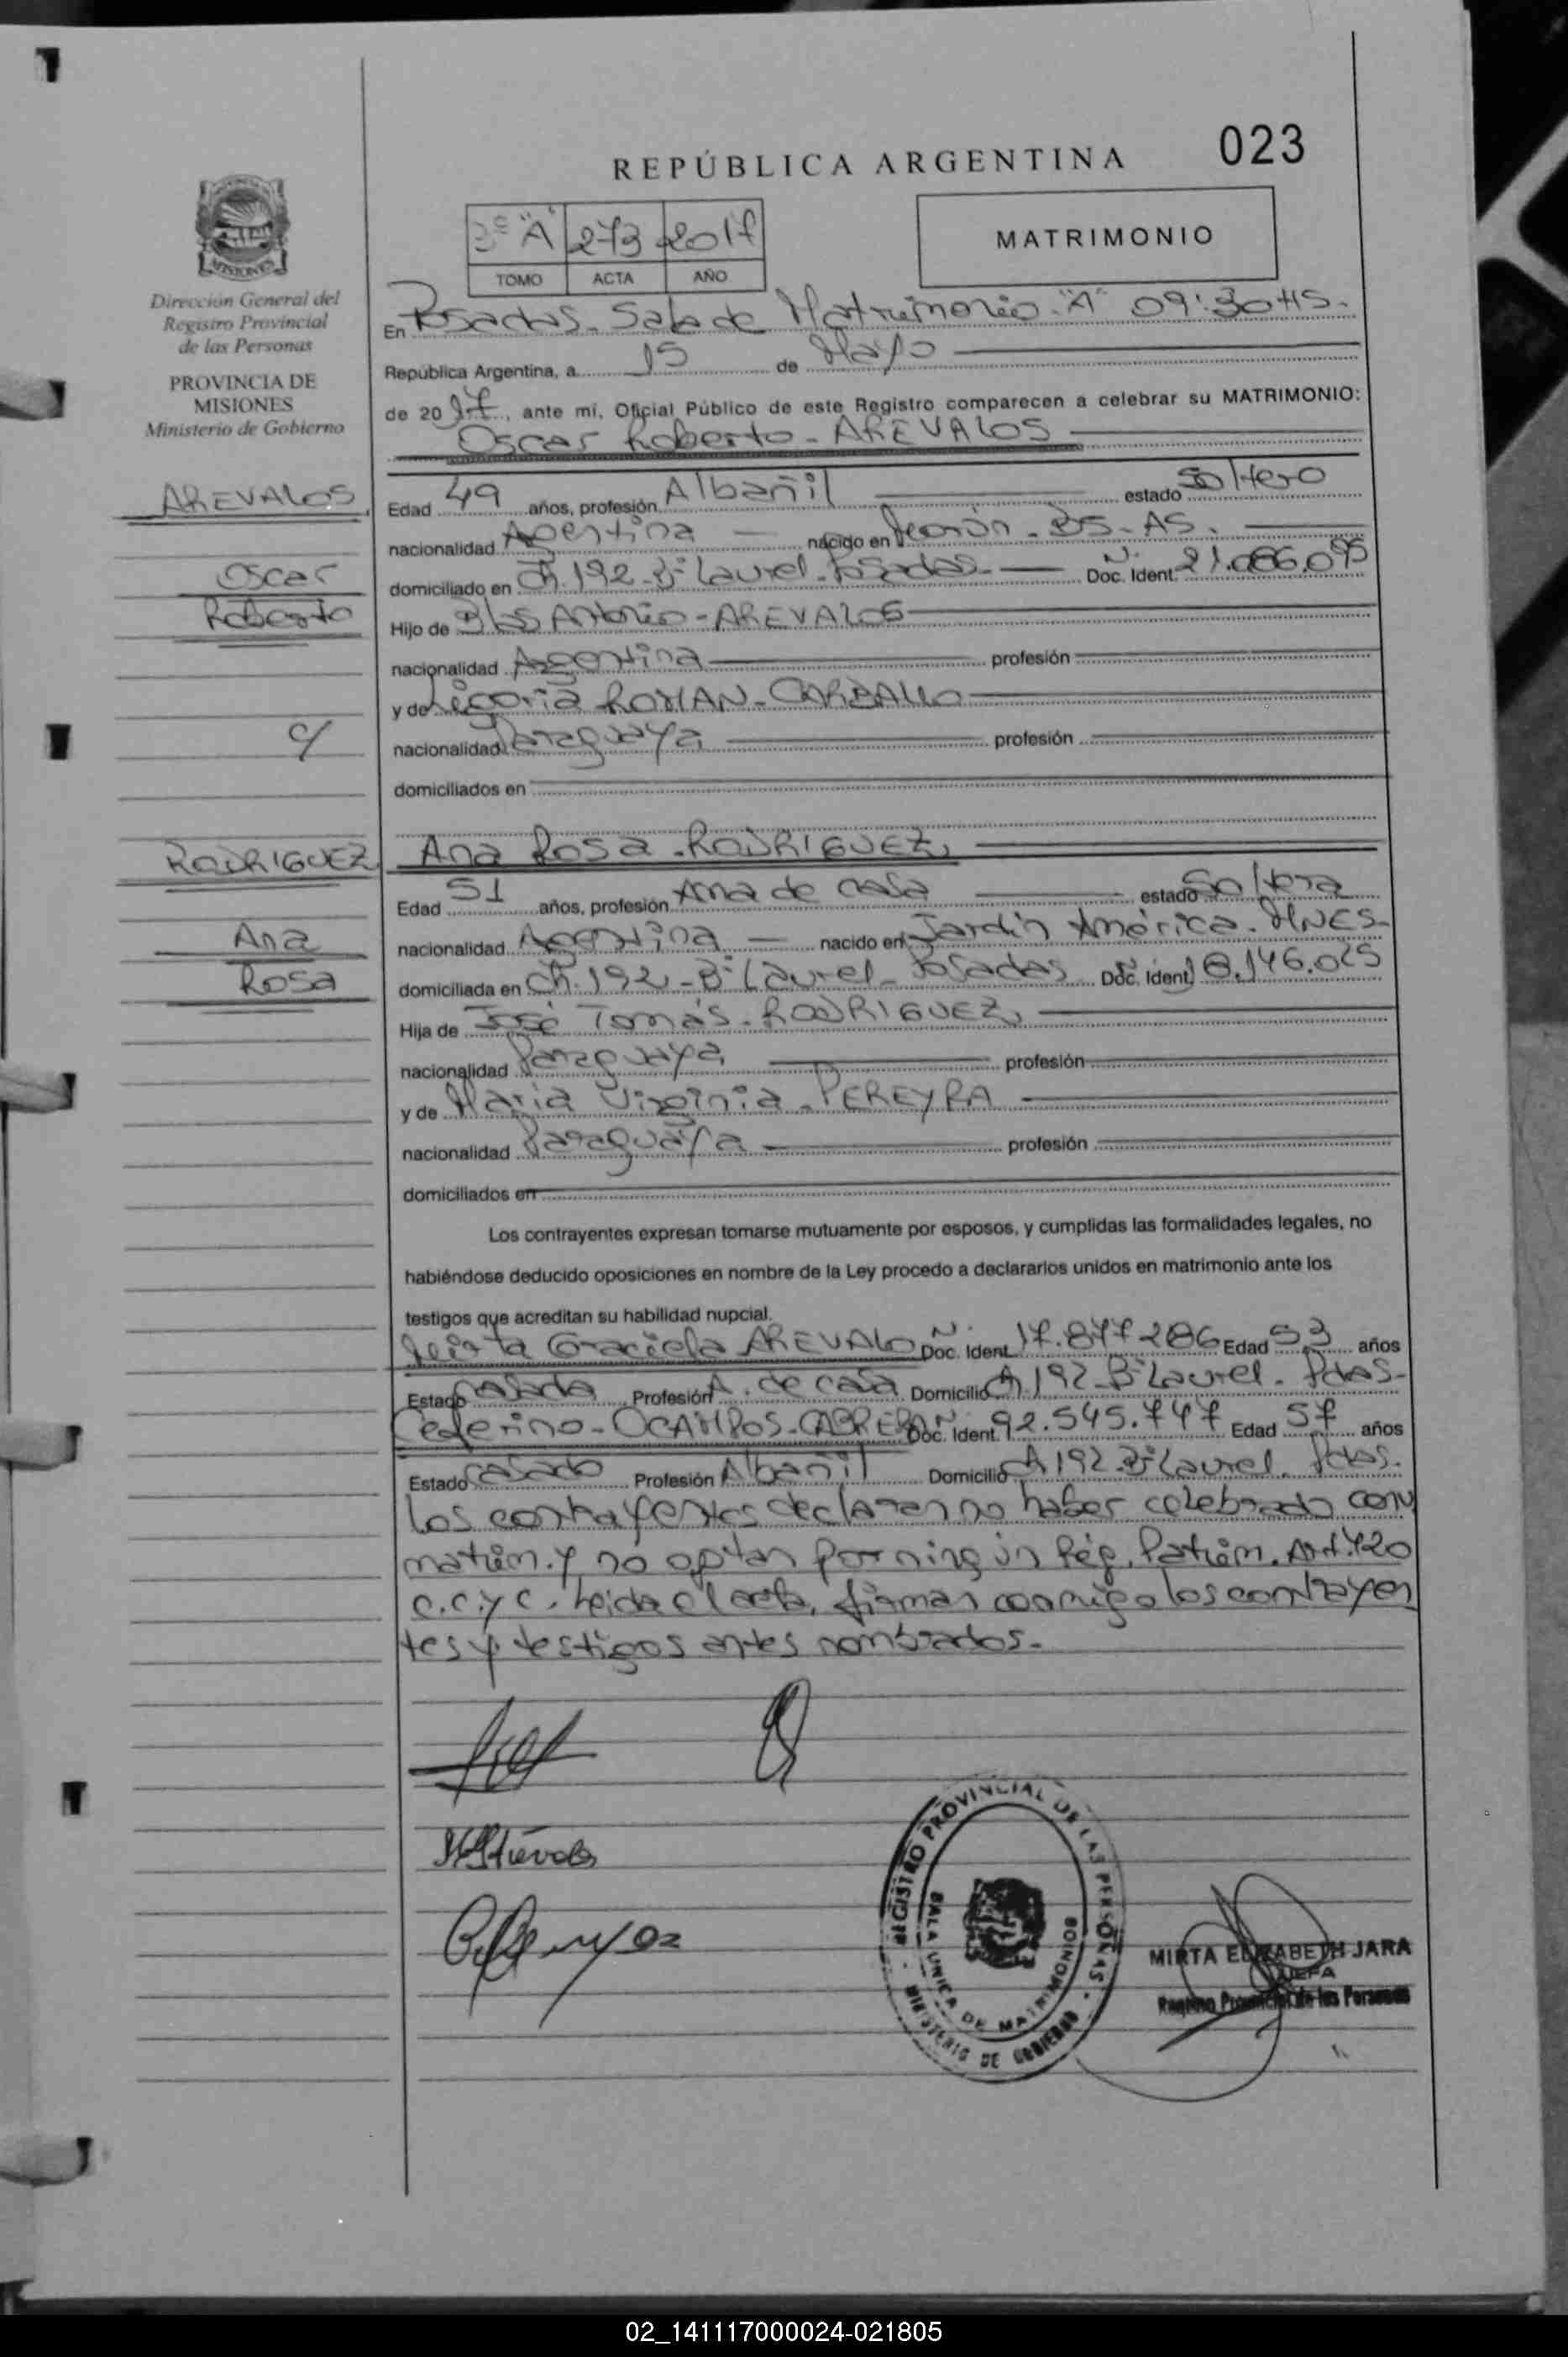 REPÚBLICA ARGENTINA
023
MISIONES
Dirección General del
Registro Provincial
de las Personas
PROVINCIA DE
MISIONES
Ministerio de Gobierno
3º "A" 273 2017
TOMO ACTA AÑO
MATRIMONIO
En Posadas. Sala de Matrimonio. "A" 09:30 HS.
República Argentina, a 15 de Mayo
de 2017, ante mí, Oficial Público de este Registro comparecen a celebrar su MATRIMONIO:
Oscar Roberto - AREVALOS
AREVALOS
Oscar
Roberto
c/
RODRIGUEZ
Ana
Rosa
Edad 49 años, profesión Albañil estado Soltero
nacionalidad Argentina nacido en Morón - BS-AS.
domiciliado en Ch. 192 - Bº Laurel - Posadas Doc. Ident. Nº 21.086.095
Hijo de Blas Antonio - AREVALOS
nacionalidad Argentina profesión
y de ROMAN - CARBALLO
nacionalidad Paraguaya profesión
domiciliados en
Ana Rosa - RODRIGUEZ
Edad 51 años, profesión Ama de casa estado Soltera
nacionalidad Argentina nacido en Jardín América - MNES-
domiciliada en Ch. 192 - Bº Laurel - Posadas Doc. Ident. 18.146.025
Hija de José Tomás - RODRIGUEZ
nacionalidad Paraguaya profesión
y de Maria Virginia - PEREYRA
nacionalidad Paraguaya profesión
domiciliados en
Los contrayentes expresan tomarse mutuamente por esposos, y cumplidas las formalidades legales, no
habiéndose deducido oposiciones en nombre de la Ley procedo a declararlos unidos en matrimonio ante los
testigos que acreditan su habilidad nupcial.
Graciela AREVALO Doc. Ident. Nº 17.877286 Edad 53 años
Estado casada Profesión A. de casa Domicilio Ch 192 - Bº Laurel - Pdas-
Ceferino - OCAMPOS - CABRERA Doc. Ident. Nº 92.545.747 Edad 57 años
Estado casado Profesión Albañil Domicilio Ch 192 Bº Laurel. Pdas.
Los contrayentes declaran no haber celebrado conv
matrim. y no optan por ningún Rég. Patrim. Art. 420
C.C.y C. Leida el acta, firman conmigo los contrayen
tes y testigos antes nombrados.
REGISTRO PROVINCIAL DE LAS PERSONAS
SALA UNICA DE MATRIMONIOS
MINISTERIO DE GOBIERNO
MIRTA ELIZABETH JARA
JEFA
Registro Provincial de las Personas
02_141117000024-021805